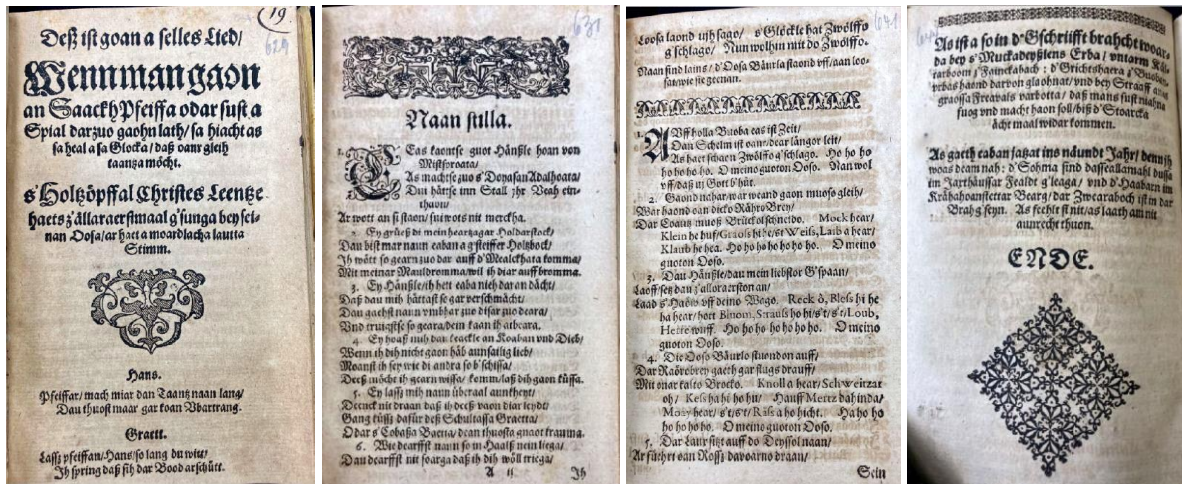 (19
629
Deß ist goan a selles Lied/
Wenn man gaon
an Saackh Pfeiffa odar sust a
Spial darzuo gaohn lath/ sa hiacht as
sa heal a sa Glocka/ daß oanr gleih
taanza möcht.
s'Holtzöpffal Christes Leentze
haets z'ållaraerstmaal g'sunga bey sei-
nan Oosa/ ar haet a moardlacha lautta
Stimm.
Hans.
Pfeiffar/ mach miar dan Taantz naan lang/
Dau thuost maar gar koan Vbartrang.
Graett.
Lassz pfeiffan/ Hans/ so lang du wit/
Jh spring daß sih dar Bood arschütt.
631
Naan stilla.
1.
Eas kaontse guot Hånßle hoan von
Mistforoata/
As machtse zuo s'Doyasan Adalhoata/
Dui håtse inn Stall jhr Veah ein-
thaun/
Ar wott an si staon/ sui wots nit merckha.
2. Ey grüeß di mein heartzagar Holdarstock/
Dau bist mar naun eaban a g'steiffer Holtzbock/
Jh wött so gearn zuo dar auff d'Mealckhata komma/
Mit meinar Mauldromma/ wil ih diar auff bromma.
3. Ey Hånßle/ ih hett eaba nieh dar an dåcht/
Daß dau mih håttast so gar verschmåcht/
Dau gachst naun vmbhar zuo disar zuo deara/
Vnd truigtse so geara/ dein kaan ih atbeara.
4. Ey hoaß mih dau keackle an Koaban vnd Dieb/
Wenn ih dih nicht gaon håb aunsailig lieb/
Moanst ih sey wie di andra so b'schissa/
Deeß möcht ih gearn wissa/ komm/ laß dih gaon küssa.
5. Ey lassz mih naun überaal aunkheyt/
Deenck nit draan daß ih deeß vaon diar leydt/
Gang küssz dafür deß Schultassa Graetta/
Odar s'Cobassa Baetta/ dean thuosta gnaot trauma.
6. Wie dearffst naun so in Haalß nein liega/
Dau dearffst nit soarga daß ih dih wöll triega/
A ij
Jh
641
Loosa laond uijh sago/ s'Glöckle hat Zwölffo
g'schlago/ Nun wolhin mit do Zwölffo.
Naan find lains/ d'Oosa Bäurla staond vff/ aan loo-
sate wie sie geenan.
1.
AVff holla Buoba eas ist Zeit/
Dan Schelm ist oanr/ dear långor leit/
As haet schaen Zwölffo g'schlago. Ho ho ho
ho ho ho ho. O meino guoton Ooso. Nan wol
vff/ daß uj Gott b'hüt.
2. Gaond nahar/ war weand gaon muoso gleih/
War haond oan dicko Råhro Brey/
Dar Loantz muoß Brückol schneido. Mock hear/
Klein he huf/ Grauls hi he/ st Weiß, Laib a hear/
Klaub he hea. Ho ho ho ho ho ho ho. O meino
guoton Ooso.
3. Dau Hånßle/ dau mein liebstor G'spaan/
Laoff/ setz dau z'alloraerston an/
Laad s'Habiw vff deino Wago. Reck ô, Bless hi he
ha hear/ hott Binom, Strauss ho hi/ s't/ s't/ Loub,
Herre wuff. Ho ho ho ho ho ho ho. O meino
guoton Ooso.
4. Die Ooso Båurlo stuondon auff/
Dar Raörebrey gaeth gar flugs drauff/
Mit onar kalto Brocko. Knoll a hear/ Schweitzar
oh/ Kess ha hi ho hit/ Hauff Mertz dahinda/
Mozy hear/ s't/ s't/ Räss a ho hicht. Ha ho ho
ho ho ho ho. O meino guoton Ooso.
5. Dar Laur sitzt auff do Deyssol naan/
Ar führt oan Rossz davoarno draan/
Sein
As ist a so in d'Gschriifft brahcht woar-
da bey s'Muckadeyßlens Erba/ vntarm Käl-
tarboom z'Fainckabach: d'Grichtshaera z'Buobar-
urbas haond darvon glaohnat/ vnd bey Straaff ans
graossa Freavals varbotta/ daß mans sust niahna
suog vnd macht haon soll/ biß d'Stoarcka
åcht maal widar kommen.
As gaeth eaban jatzat ins nåundt Jahr/ dennijh
woas deam nah: d'Sohma sind dassealbmahl dussa
im Jarthåussar Fealdt g'leaga/ vnd d'Haabarn im
Kråbahoanstettar Bearg/ dar Zwearaboch ist in dar
Brahg seyn. As feehlt si nit/ as laath am nit
aunrecht thuon.
ENDE.